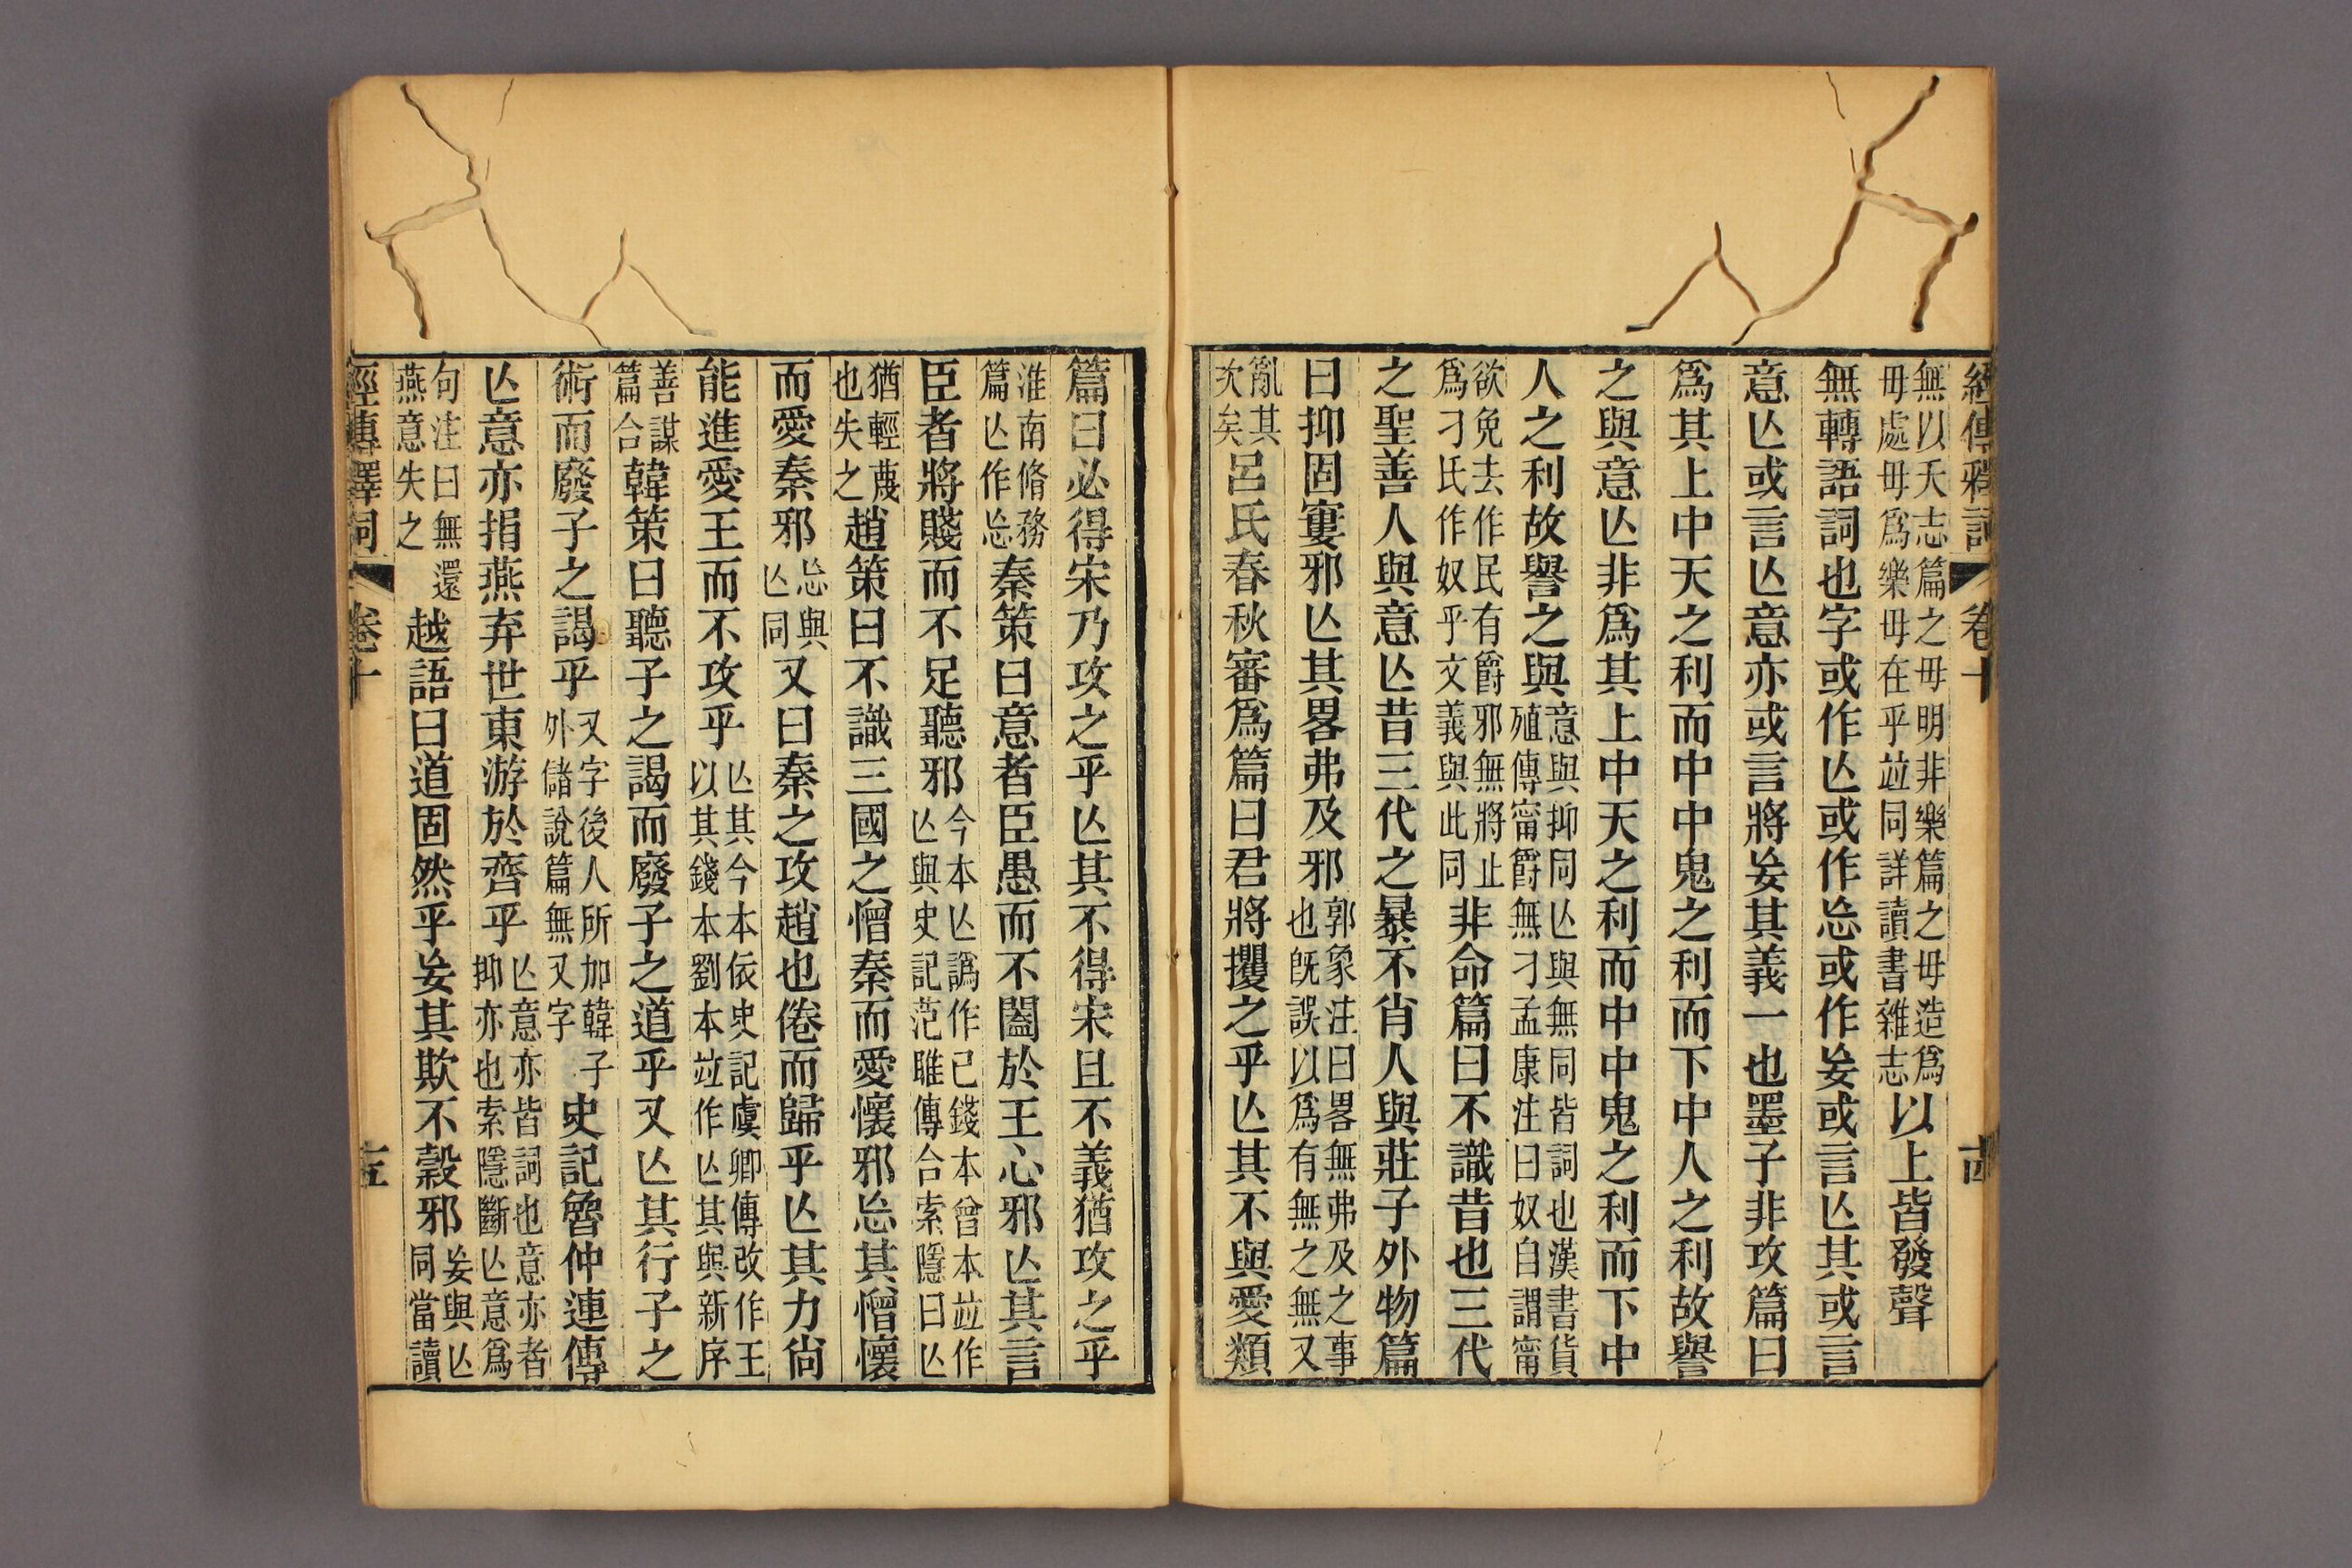 經傳釋詞 卷十 十四
無以天志篇之毋明非樂篇之毋造爲毋處毋爲樂毋在乎竝同詳讀書雜志以上皆發聲
無轉語詞也字或作亾或作忘或作妄或言亾其或言
意亾或言亾意亦或言將妄其義一也墨子非攻篇曰
爲其上中天之利而中中鬼之利而下中人之利故譽
之與意亾非爲其上中天之利而中中鬼之利而下中
人之利故譽之與意與抑同亾與無同皆詞也漢書貨殖傳甯爵無刁孟康注曰奴自謂甯
欲免去作民有爵邪無將止爲刁氏作奴乎文義與此同非命篇曰不識昔也三代
之聖善人與意亾昔三代之暴不肖人與莊子外物篇
曰抑固窶邪亾其畧弗及邪郭象注曰畧無弗及之事也旣誤以爲有無之無又
亂其次矣呂氏春秋審爲篇曰君將攫之乎亾其不與愛類
篇曰必得宋乃攻之乎亾其不得宋且不義猶攻之乎
淮南脩務篇亾作忘秦策曰意者臣愚而不闔於王心邪亾其言
臣者將賤而不足聽邪今本亾譌作已錢本曾本竝作亾與史記范雎傳合索隱曰亾
猶輕蔑也失之趙策曰不識三國之憎秦而愛懷邪忘其憎懷
而愛秦邪忘與亾同又曰秦之攻趙也倦而歸乎亾其力尙
能進愛王而不攻乎亾其今本依史記虞卿傳改作王以其錢本劉本竝作亾其與新序
善謀篇合韓策曰聽子之謁而廢子之道乎又亾其行子之
術而廢子之謁乎又字後人所加韓子外儲說篇無又字史記魯仲連傳
亾意亦捐燕弃世東游於齊乎亾意亦皆詞也意亦者抑亦也索隱斷亾意爲
句注曰無還燕意失之越語曰道固然乎妄其欺不穀邪妄與亾同當讀
經傳釋詞 卷十 十五